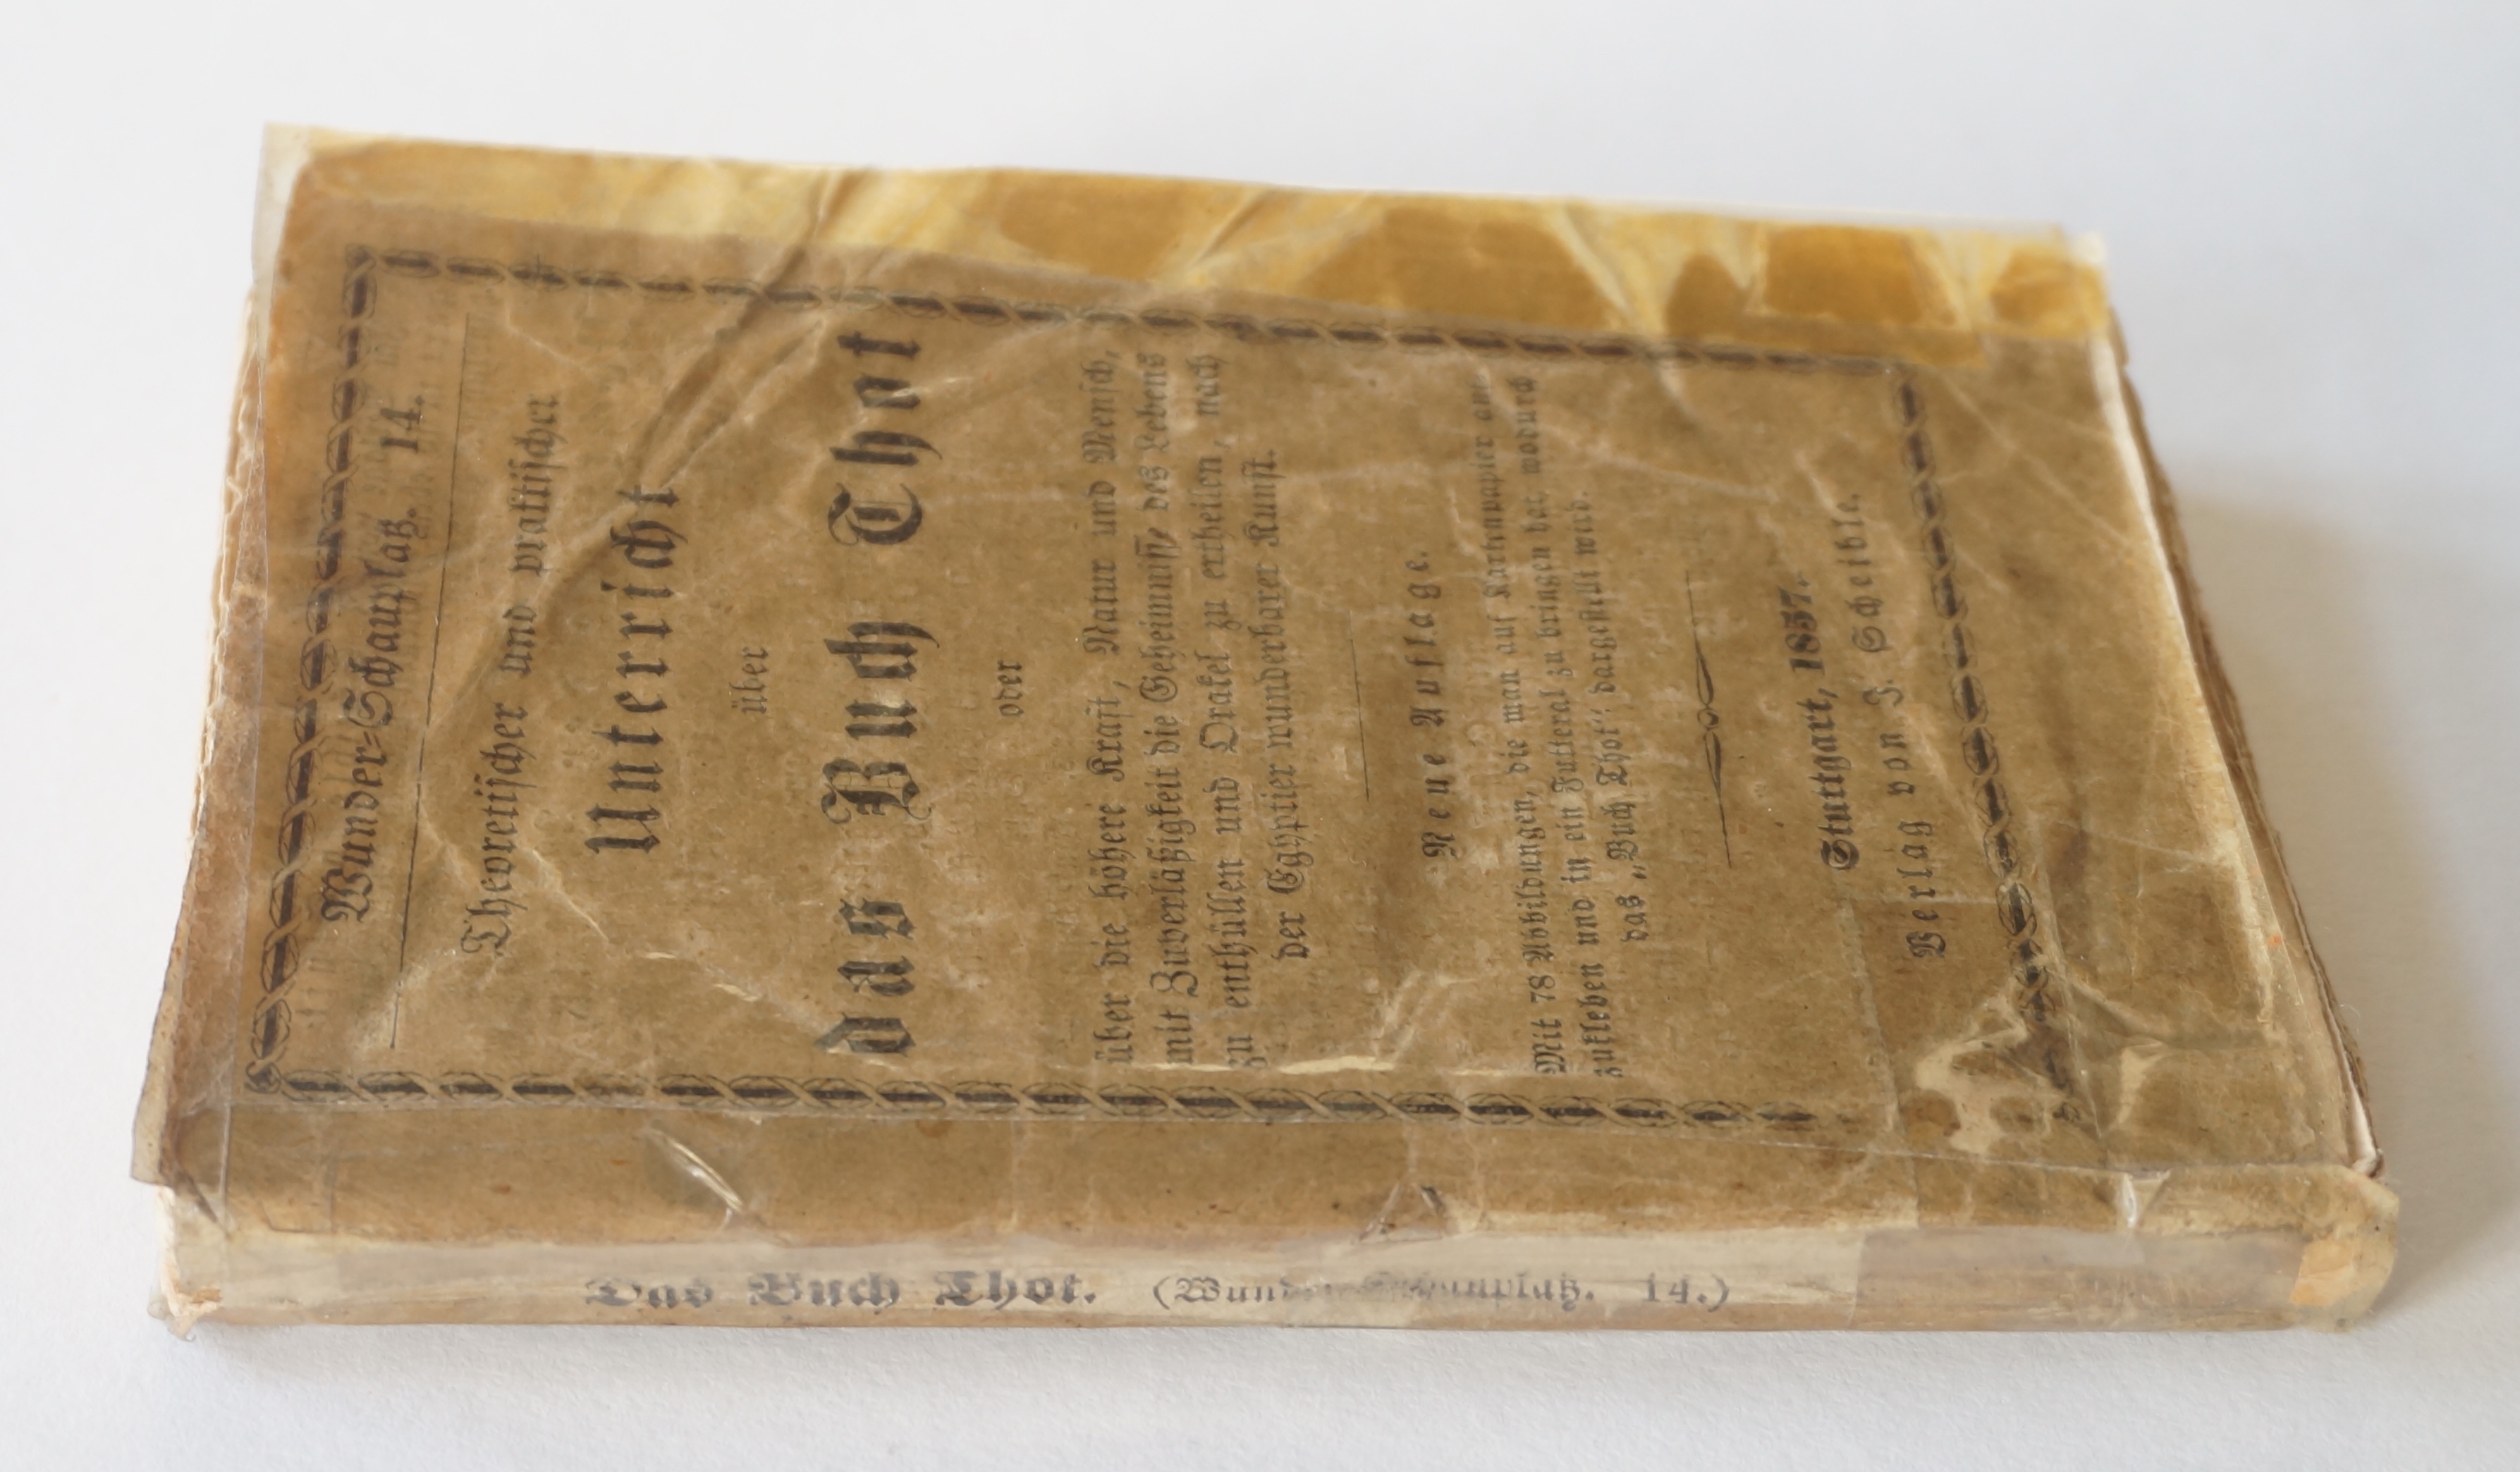 Wunder=Schauplatz. 14.
Theoretischer und praktischer
Unterricht
über
das Buch Thot
oder
über die höhere Kraft, Natur und Mensch,
mit Zuverläßigkeit die Geheimnisse des Lebens
zu enthüllen und Orakel zu ertheilen, nach
der Egyptier wunderbarer Kunst.
Neue Auflage.
Mit 78 Abbildungen, die man auf Kartenpapier
zukleben und in ein Futteral zu bringen hat, wodurch
das „Buch Thot“ dargestellt wird.
Stuttgart, 1857.
Verlag von J. Scheible.
Das Buch Thot. (Wunder=Schauplatz. 14.)